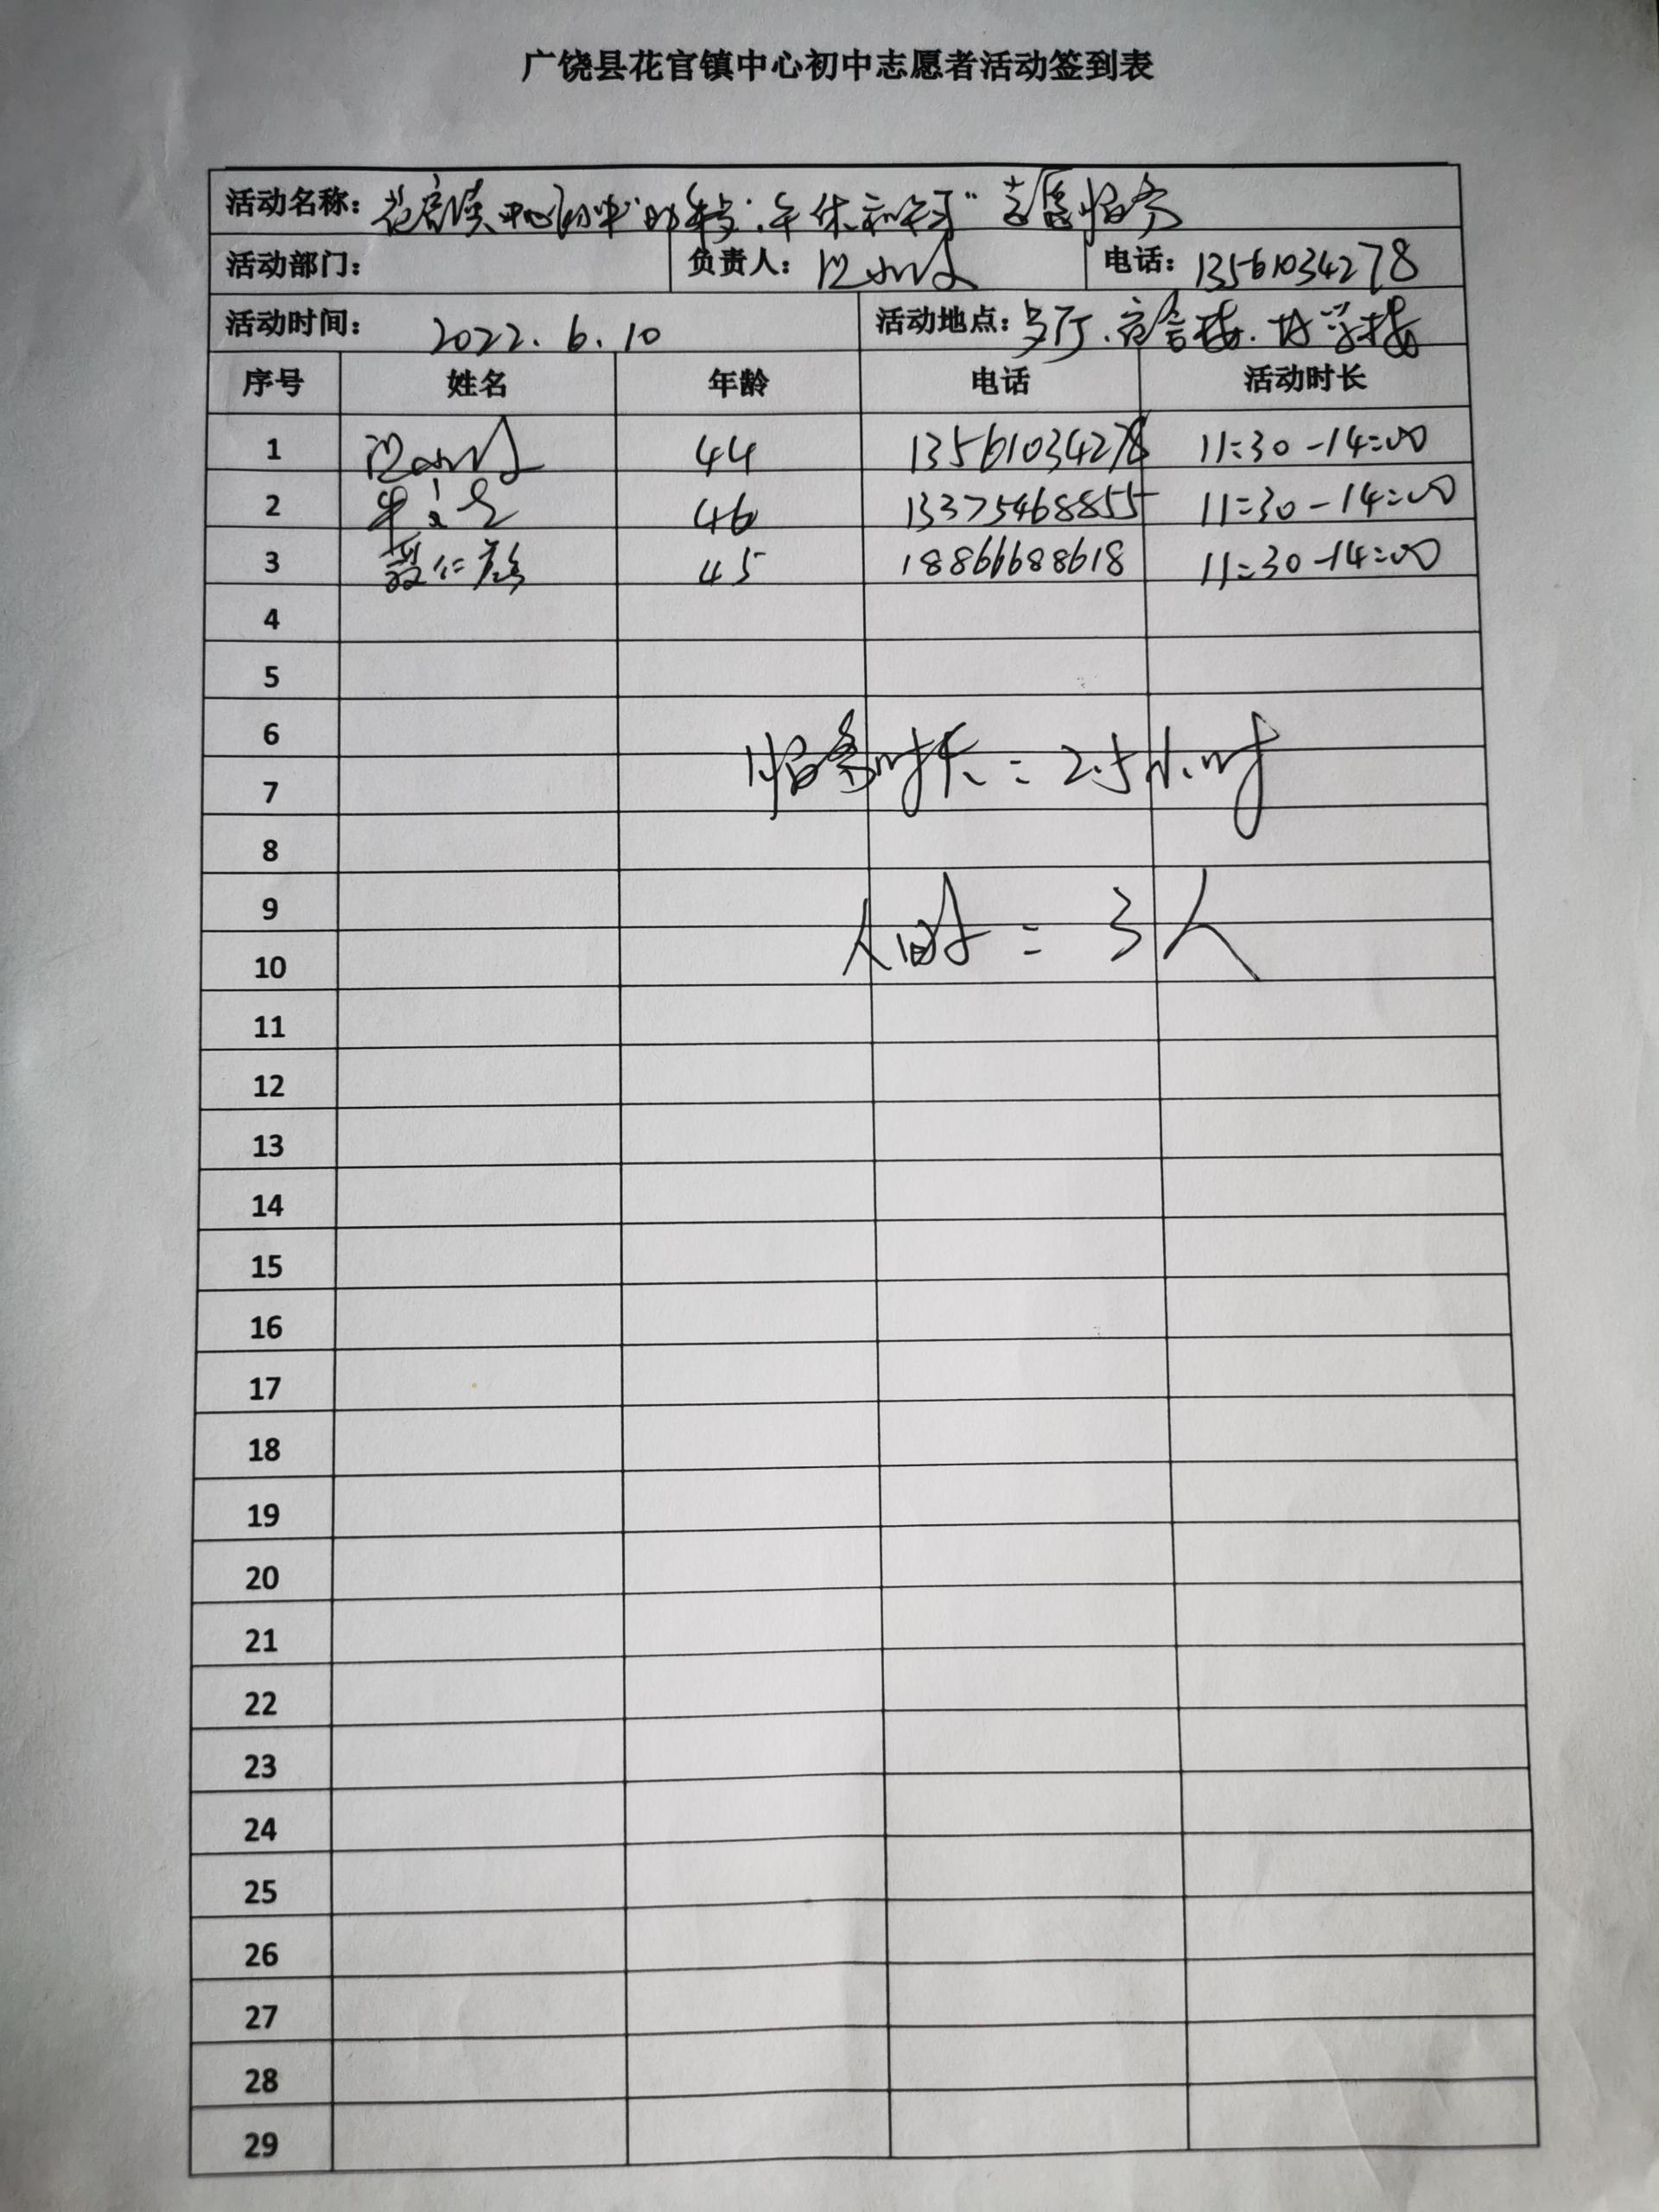 广饶县花官镇中心初中志愿者活动签到表
活动名称：花官镇中心初中"午休和午习"志愿服务
活动部门： 负责人： 电话：13561034278
活动时间：2022.6.10 活动地点：宿舍楼.教学楼
序号 姓名 年龄 电话 活动时长
1 44 13561034278 11:30-14:00
2 46 13375468855 11:30-14:00
3 45 18866688618 11:30-14:00
4
5
6
服务时长:2.5小时
7
8
9
人时:3人
10
11
12
13
14
15
16
17
18
19
20
21
22
23
24
25
26
27
28
29